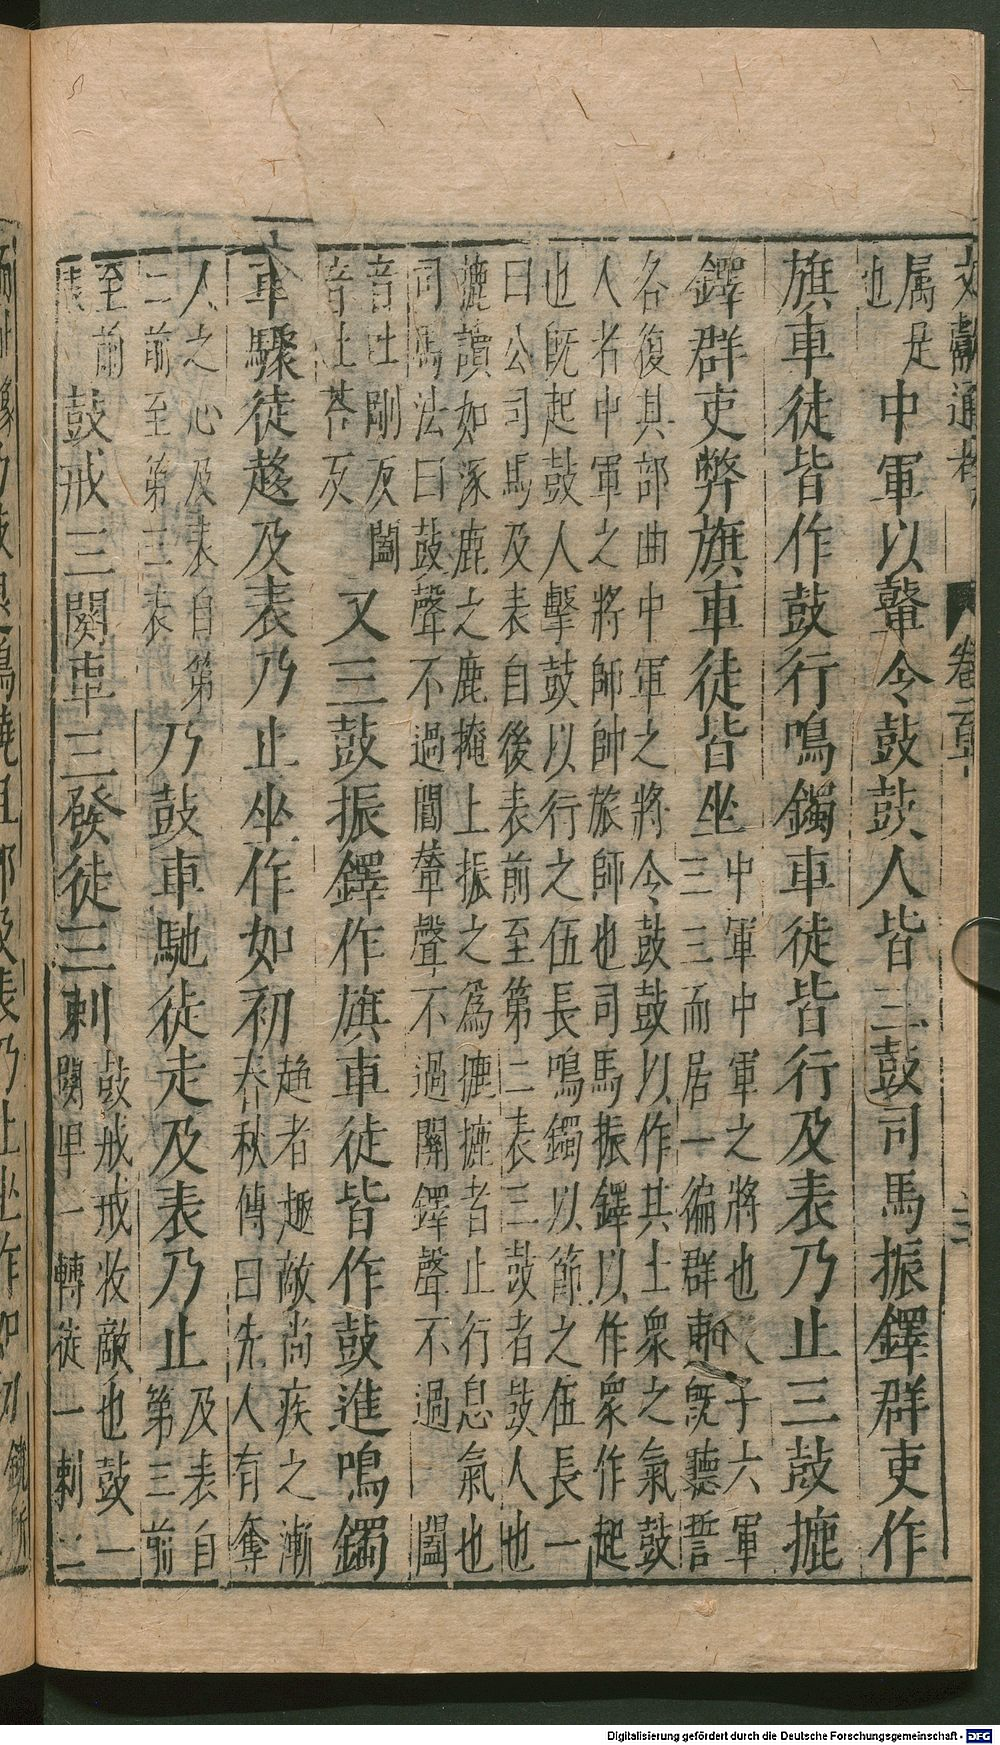 文獻通考 卷一百五十 三
属是
也
中軍以鼙令鼓鼓人皆三鼓司馬振鐸群吏作
旗車徒皆作鼓行鳴鐲車徒皆行及表乃止三鼓摝
鐸群吏弊旗車徒皆坐
中軍中軍之將也天子六軍
三三而居一徧群吏既聽誓
各復其部曲中軍之將令鼓鼓以作其士衆之氣鼓
人者中軍之將師帥旅師也司馬振鐸以作衆作起
也既起鼓人擊鼓以行之伍長鳴鐲以節之伍長一
曰公司馬及表自後表前至第二表三鼓者鼓人也
摝讀如涿鹿之鹿掩上振之為摝摝者止行息氣也
司馬法曰鼓聲不過閶鼙聲不過闒鐸聲不過闔
音吐剛反闔
音吐荅反
又三鼓振鐸作旗車徒皆作鼓進鳴鐲
車驟徒趨及表乃止坐作如初
趨者趣敵尚疾之漸
春秋傳曰先人有奪
人之心及表自第
二前至第三表
乃鼓車馳徒走及表乃止
及表自
第三前
至前
表
鼓戒三闋車三發徒三刺
鼓戒戒攻敵也鼓一
闋車一轉徒一刺三